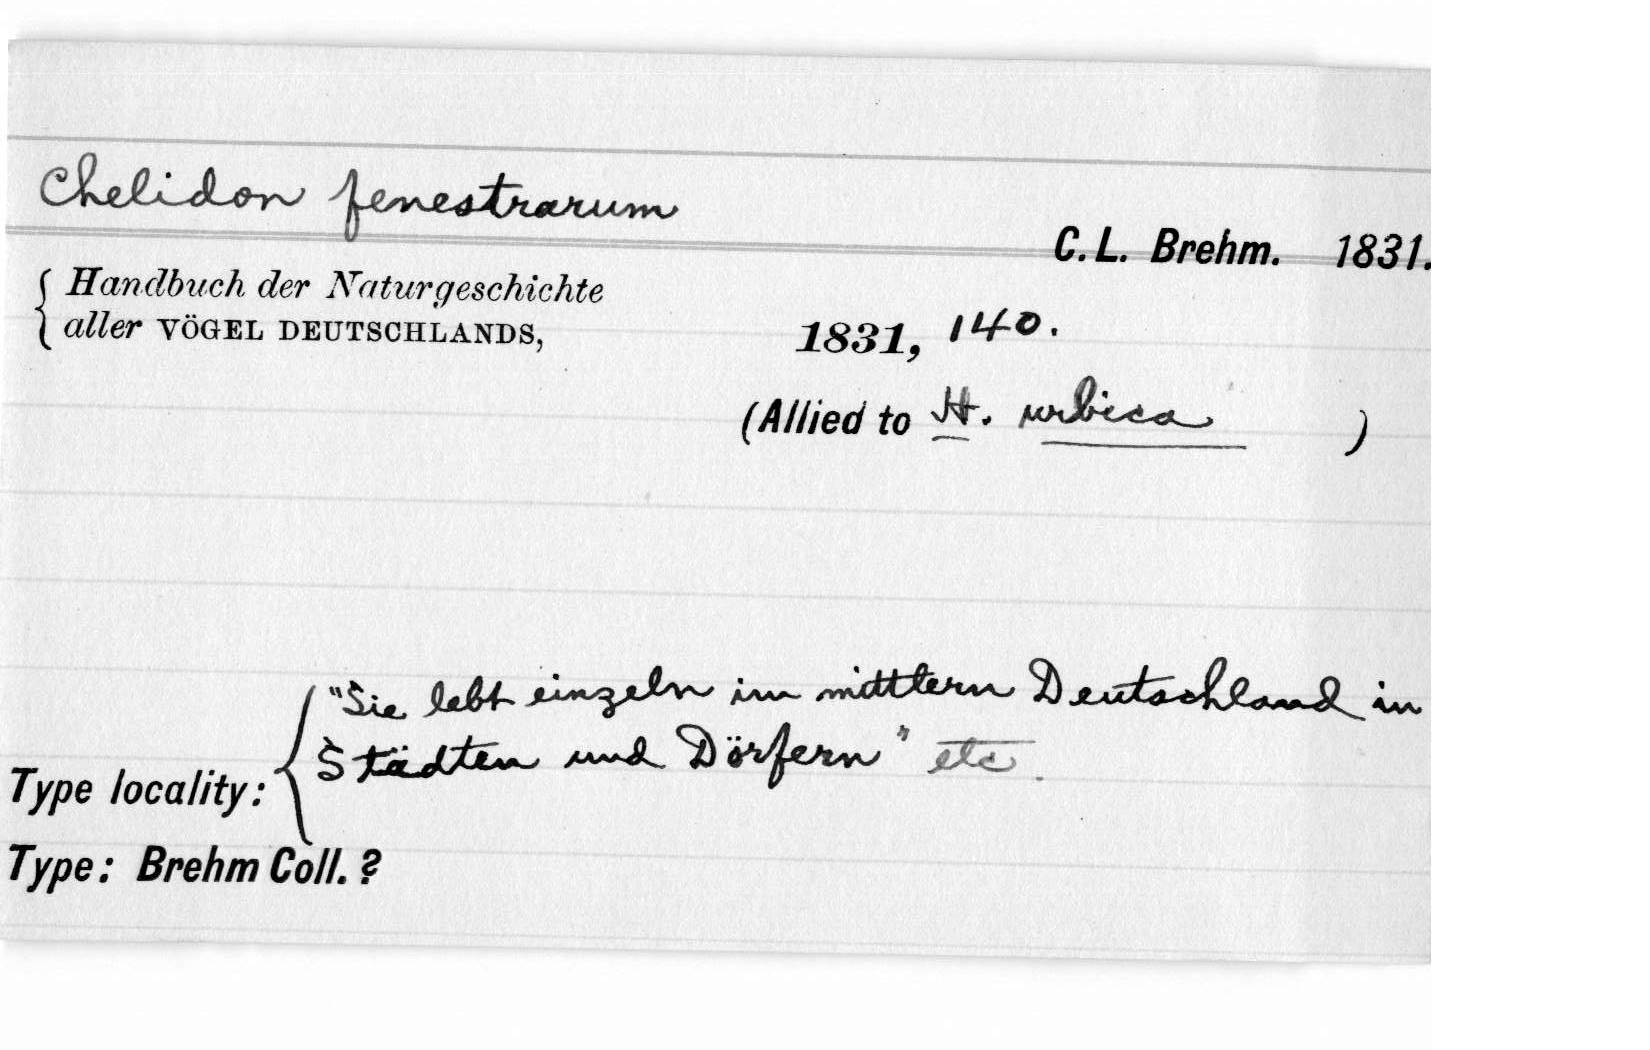 Chelidon fenestrarum
C. L. Brehm. 1831.
Handbuch der Naturgeschichte
aller VÖGEL DEUTSCHLANDS, 1831, 140.
(Allied to H. urbica )
"Sie lebt einzeln im mittlern Deutschland in
Städten und Dörfern" etc.
Type locality:
Type: Brehm Coll. ?